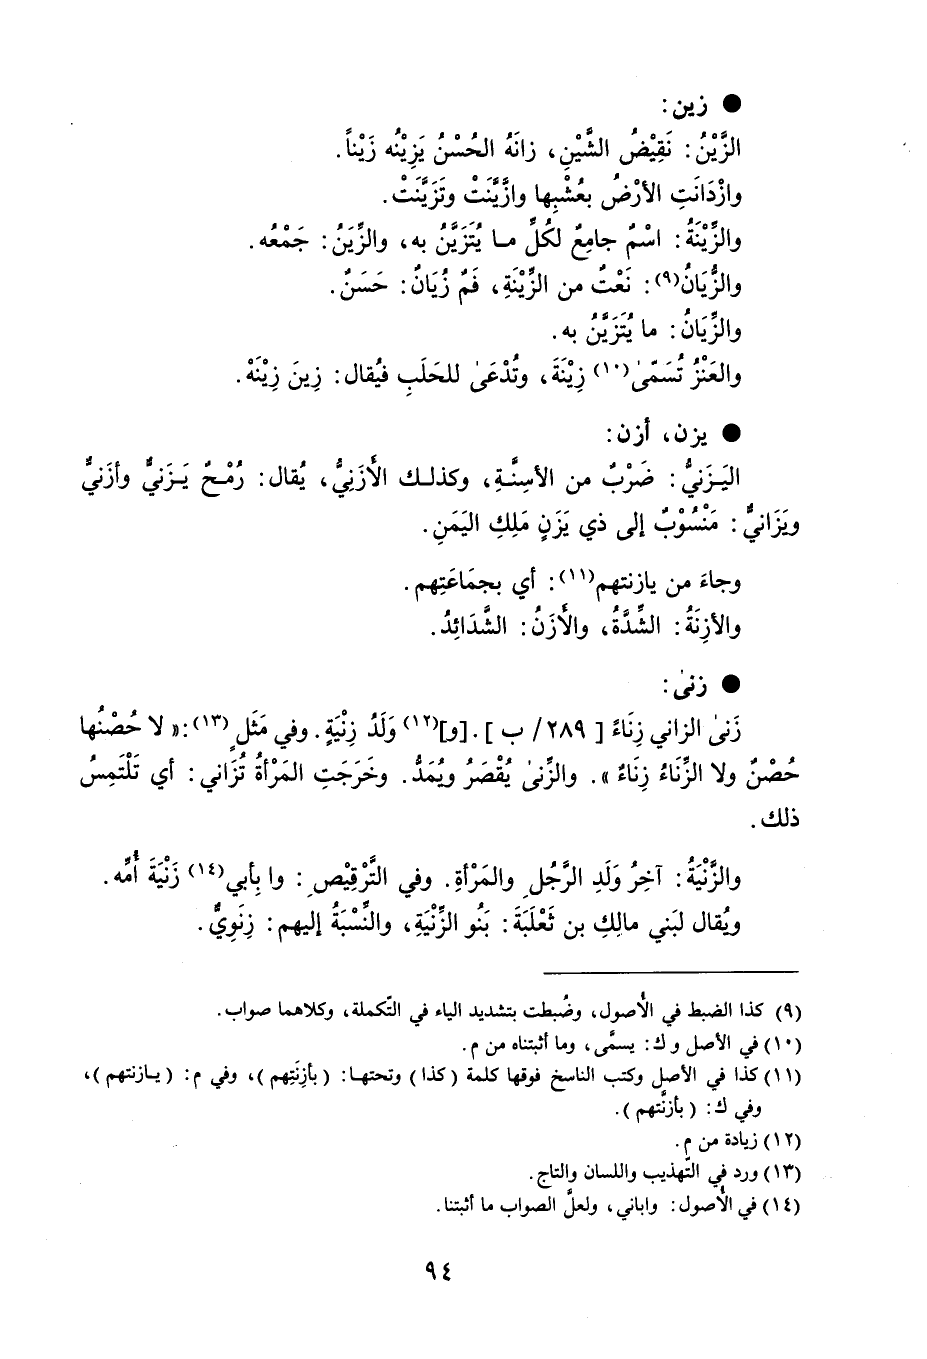 ● زين:
الزَّيْنُ: نَقِيْضُ الشَّيْنِ، زانَهُ الحُسْنُ يَزِيْنُه زَيْناً.
وازْدَانَتِ الأرْضُ بعُشْبِها وازَّيَّنَتْ وتَزَيَّنَتْ.
والزِّيْنَةُ: اسْمٌ جامِعٌ لكُلِّ ما يُتَزَيَّنُ به، والزِّيَنُ: جَمْعُه.
والزُّيَانُ(٩): نَعْتٌ من الزِّيْنَةِ، فَمٌ زُيَانٌ: حَسَنٌ.
والزِّيَانُ: ما يُتَزَيَّنُ به.
والعَنْزُ تُسَمّىٰ(١٠) زِيْنَةَ، وتُدْعَىٰ للحَلَبِ فيُقال: زِينَ زِيْنَهْ.
● يزن، أزن:
اليَزَنيُّ: ضَرْبٌ من الأسِنَّةِ، وكذلك الأَزَنِيُّ، يُقال: رُمْحٌ يَزَنيٌّ وأزَنيٌّ
ويَزَانيٌّ: مَنْسُوْبٌ إلى ذي يَزَنٍ مَلِكِ اليَمَنِ.
وجاءَ من يازنتهم(١١): أي بجمَاعَتِهم.
والأزِنَةُ: الشِّدَّةُ، والأَزَنُ: الشَّدَائِدُ.
● زنىٰ:
زَنىٰ الزاني زِنَاءً [ ٢٨٩/ ب ]. [و](١٢) وَلَدُ زِنْيَةٍ. وفي مَثَلٍ(١٣): « لا حُصْنُها
حُصْنٌ ولا الزِّنَاءُ زِنَاءٌ ». والزِّنىٰ يُقْصَرُ ويُمَدُّ. وخَرَجَتِ المَرْأةُ تُزَاني: أي تَلْتَمِسُ
ذلك.
والزَّنْيَةُ: آخِرُ وَلَدِ الرَّجُلِ والمَرْأةِ. وفي التَّرْقِيْصِ: وا بِأبي(١٤) زَنْيَةَ أُمِّه.
ويُقال لبَني مالِكِ بن ثَعْلَبَةَ: بَنُو الزِّنْيَةِ، والنِّسْبَةُ إليهم: زِنَوِيٌّ.
(٩) كذا الضبط في الأُصول، وضُبطت بتشديد الياء في التّكملة، وكلاهما صواب.
(١٠) في الأصل و ك: يسمَّى، وما أثبتناه من م.
(١١) كذا في الأصل وكتب الناسخ فوقها كلمة ( كذا ) وتحتها: ( بأزِنَتِهم )، وفي م: ( يازنتهم )،
وفي ك: ( بأزنَّتهم ).
(١٢) زيادة من م.
(١٣) ورد في التّهذيب واللسان والتاج.
(١٤) في الأُصول: واباني، ولعلَّ الصواب ما أثبتنا.
٩٤